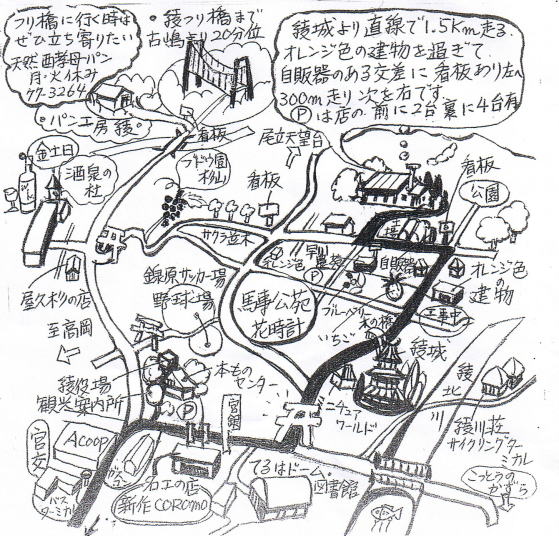 フリ橋に行く時は
ぜひ立ち寄りたい
天然酵母パン
月・火休み
77-3264
・パン工房綾。
・綾フリ橋まで
古嶋より20分位
綾城より直線で1.5km走る.
オレンジ色の建物を過ぎて、
自販器のある交差に看板あり左へ
300m走り次を右です。
Ⓟは店の前に2台裏に4台有
看板
尾立天望台
金土日
酒泉の
杜
ブドウ園
杉山
看板
看板
公園
サクラ並木
オレンジ色
Ⓟ
自販器
オレンジ色
の
建物
屋久杉の店
錦原サッカー場
野球場
馬事公苑
花時計
ブルーベリー
いちご
木の橋
工事中
至高岡
綾城
綾
北
川
本もの
センター
綾役場
観光案内所
Ⓟ
ミニチュア
ワールド
綾川荘
サイクリングター
ミナル
宮交
Acoop
バス
ターミナル
石工の店
新作COROMO
てるはドーム
図書館
こっとうの
かずら